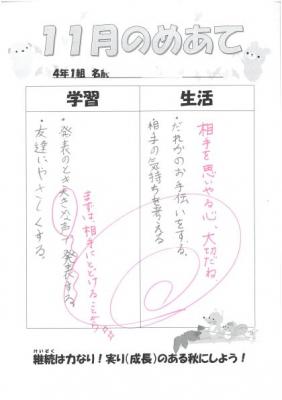 11月のめあて
4年1組 名前
学習
生活
・発表のとき大きな声で発表する。
・友達にやさしくする。
まずは、相手にとどけることから☆☆
・だれかのお手伝いをする。
相手の気持ちを考える
相手を思いやる心、大切だね。
けいぞく
継続は力なり!実り(成長)のある秋にしよう!